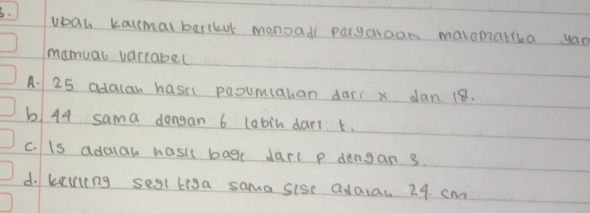 3. Ubah kalimat berikut menjadi persyaaan matematika yan
memuat variabel
A. 25 adalah hasil pejumlahan dari x dan 18.
b. 44 sama dengan 6 lebih dari t.
c. 15 adalah hasil bagi dari p dengan 3.
d. keliling segi tiga sama sisi adalah 24 cm